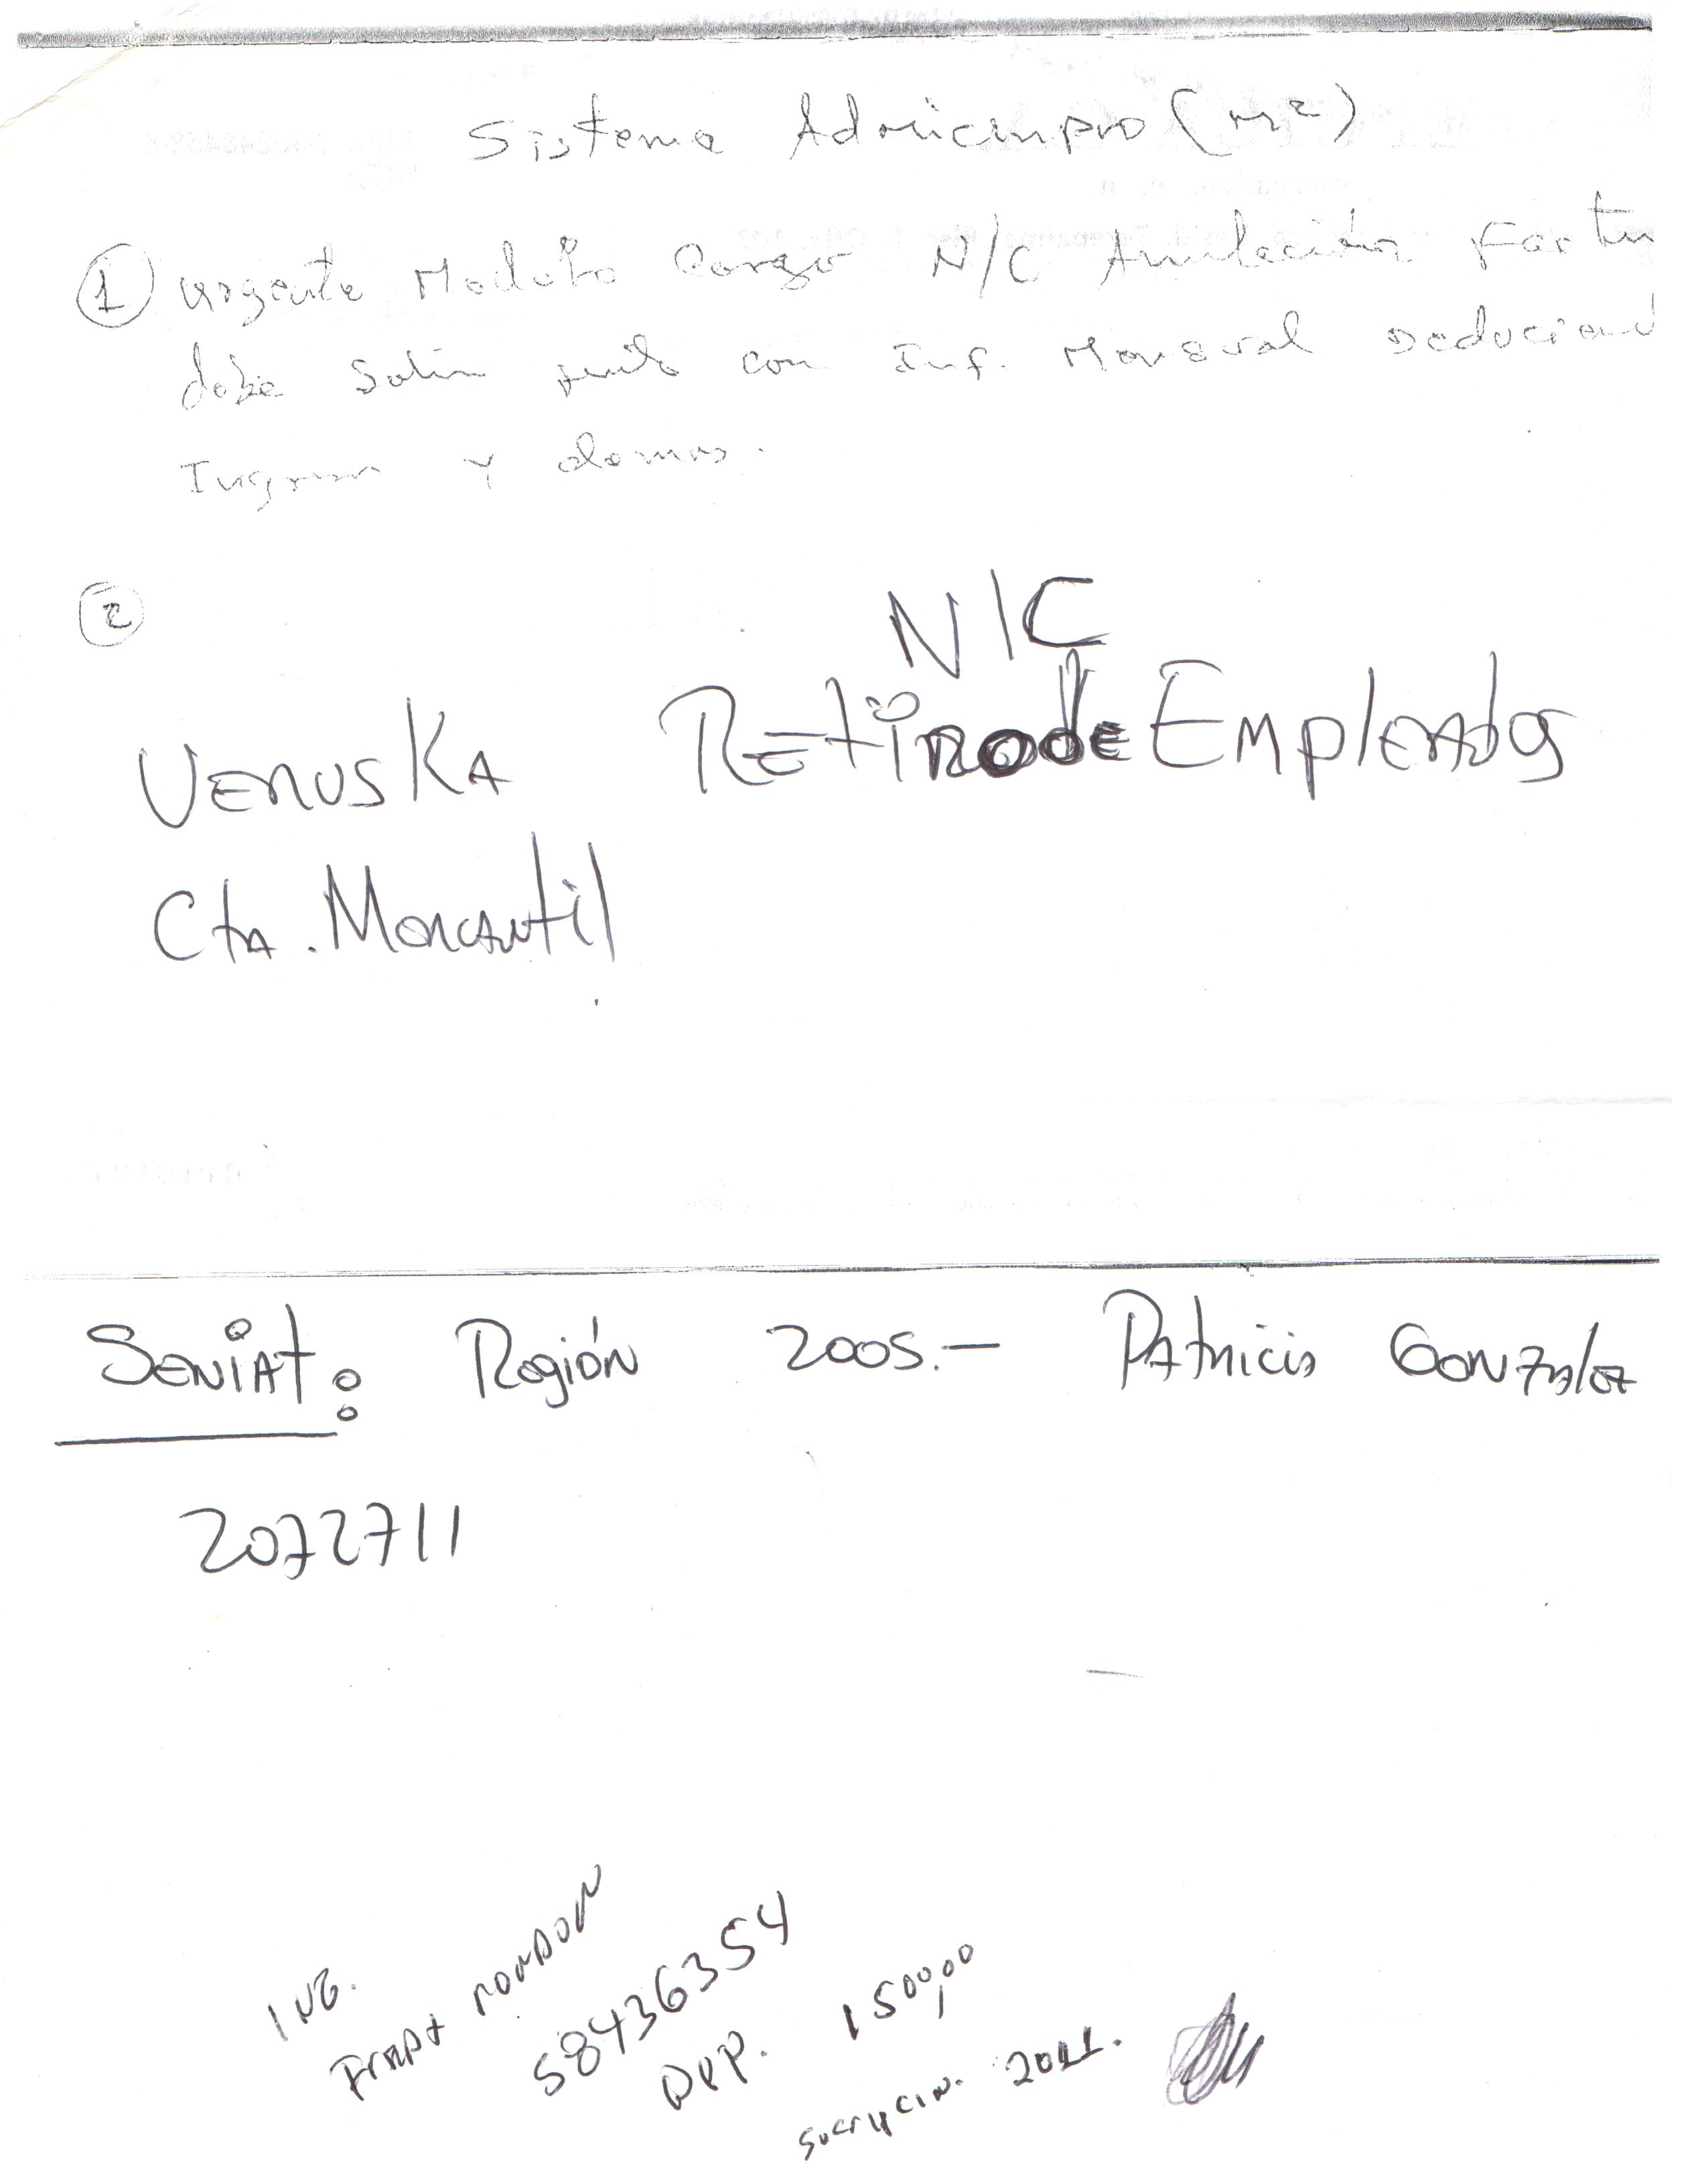 Sistema Admicinpro (M²)
① Urgente Modelo Cargo N/C Anulación Factu
debe Salir junto con Inf. Mensual deduciend
Ingresos y demas.
②
N/C
Retiro de Empleados
VENUSKA
Cta. Mercantil
SENIAT: Región 2005.- Patricia Gonzalez
2072711
ING.
RONDON
58436354
Dep. 1500,00
2011.